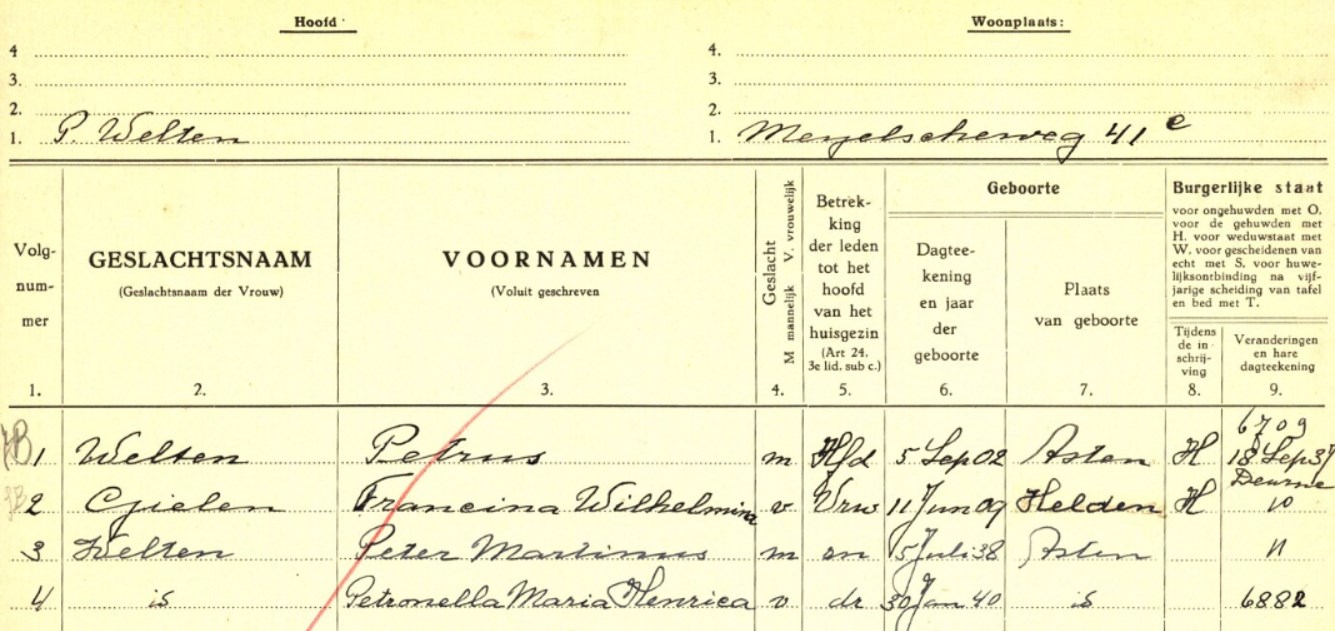 Hoofd Woonplaats:
4 4.
3. 3.
2. 2.
1. P. Welten 1. Meyelscheweg 41 e
Volg-
num-
mer
1.
GESLACHTSNAAM
(Geslachtsnaam der Vrouw)
2.
VOORNAMEN
(Voluit geschreven
3.
Geslacht
M mannelijk V. vrouwelijk
4.
Betrek-
king
der leden
tot het
hoofd
van het
huisgezin
(Art 24.
3e lid. sub c.)
5.
Geboorte
Dagtee-
kening
en jaar
der
geboorte
6.
Plaats
van geboorte
7.
Burgerlijke staat
voor ongehuwden met O.
voor de gehuwden met
H. voor weduwstaat met
W. voor gescheidenen van
echt met S. voor huwe-
lijksontbinding na vijf-
jarige scheiding van tafel
en bed met T.
Tijdens
de in
schrij-
ving
8.
Veranderingen
en hare
dagteekening
9.
6709
1 Welten Petrus m Hfd 5 Sep 02 Asten H 18 Sep 37
Deurne
2 Gielen Francina Wilhelmina v Vrw 11 Jun 09 Helden H
3 Welten Peter Martinus m zn 15 Juli 38 Asten
4 id Petronella Maria Henrica v dr 30 Jan 40 id 6882